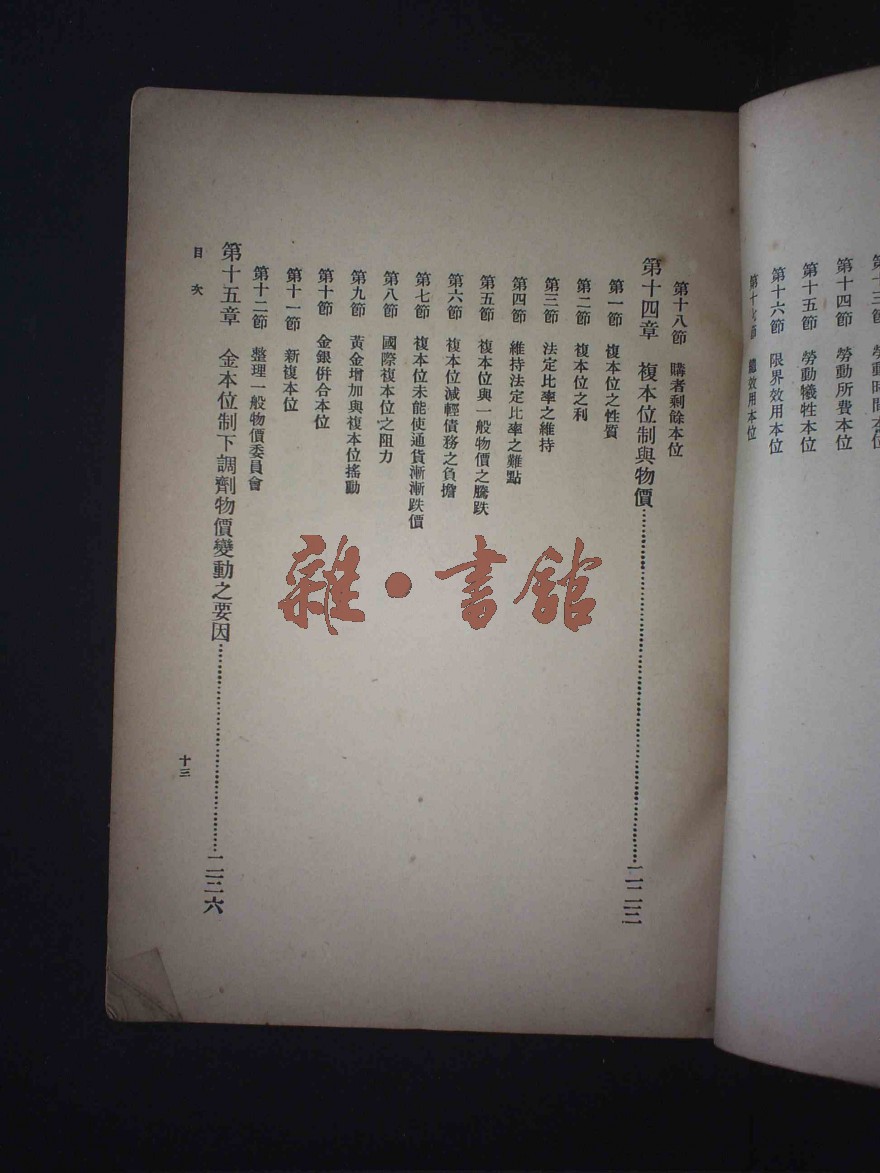 第十三節 勞動時間本位
第十四節 勞動所費本位
第十五節 勞動犧牲本位
第十六節 限界效用本位
第十七節 總效用本位
第十八節 購者剩餘本位
第十四章 複本位制與物價
第一節 複本位之性質
第二節 複本位之利
第三節 法定比率之維持
第四節 維持法定比率之難點
第五節 複本位與一般物價之騰跌
第六節 複本位減輕債務之負擔
第七節 複本位未能使通貨漸漸跌價
第八節 國際複本位之阻力
第九節 黃金增加與複本位搖動
第十節 金銀併合本位
第十一節 新複本位
第十二節 整理一般物價委員會
第十五章 金本位制下調劑物價變動之要因
目次
十三
雜·書館